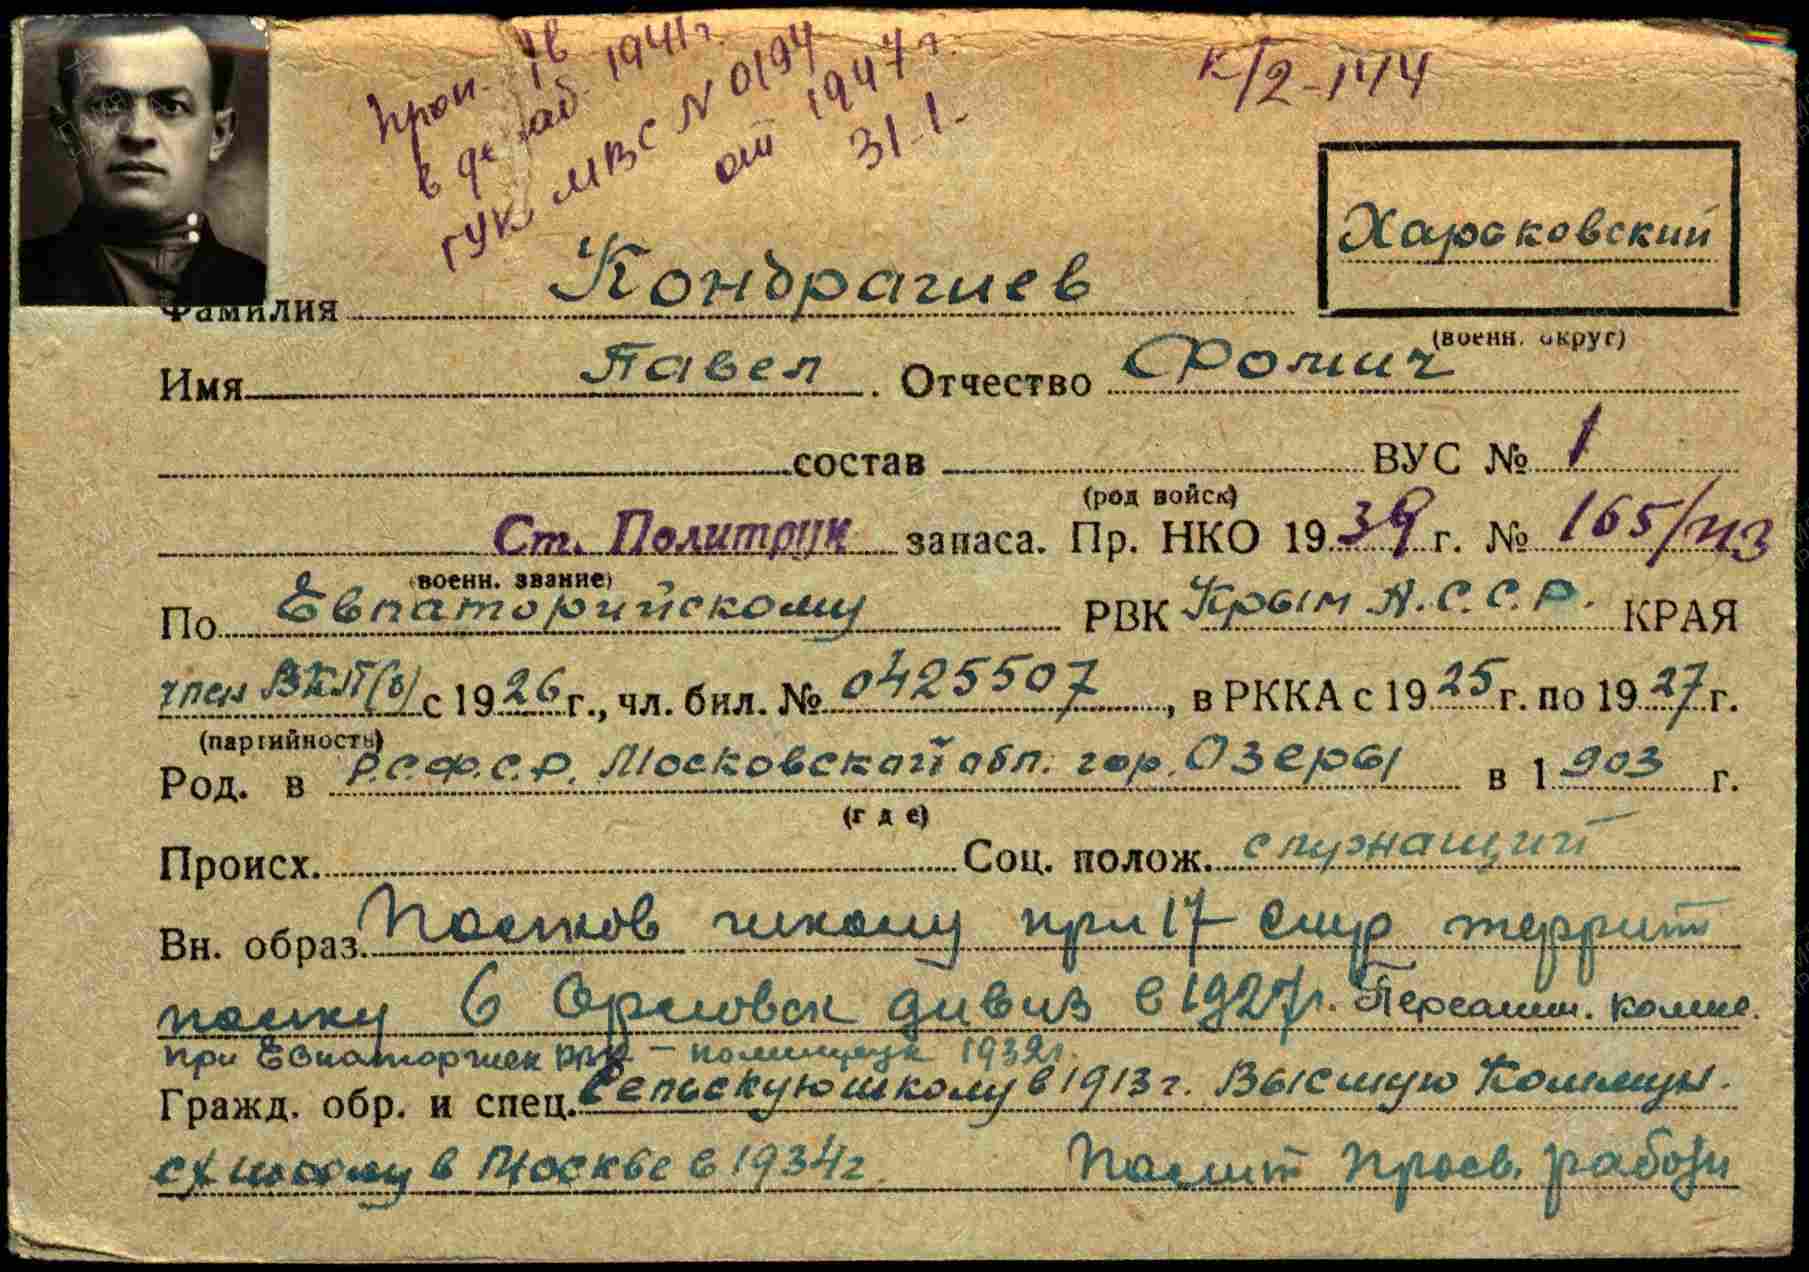 Проп. б/в
в декаб. 1941 г.
ГУК МВС N 0194
от 1947 г.
31-1-
К/2-144
Харьковский
(военн. округ)
Фамилия Кондрашев
Имя Павел. Отчество Фомич
состав ВУС № 1
(род войск)
Ст. Политрук запаса. Пр. НКО 1939 г. № 165/
(военн. звание)
По Евпаторийскому РВК Крым А.С.С.Р. КРАЯ
член ВКП(б) с 1926 г., чл. бил. № 0425507, в РККА с 1925 г. по 1927 г.
(партийность)
Род. в Р.С.Ф.С.Р. Московской обл. гор. Озеры в 1903 г.
(где)
Происх. Соц. полож. служащий
Вн. образ. Полков школу при 17 стр террит
полку 6 Орловск дивиз в 1927 г. Переатт. комис.
при Евпаторийск РВК – политрук 1932 г.
Гражд. обр. и спец. Сельскую школу в 1913 г. Высшую Коммун.
сх школу в Москве в 1934 г. Полит просв. работн